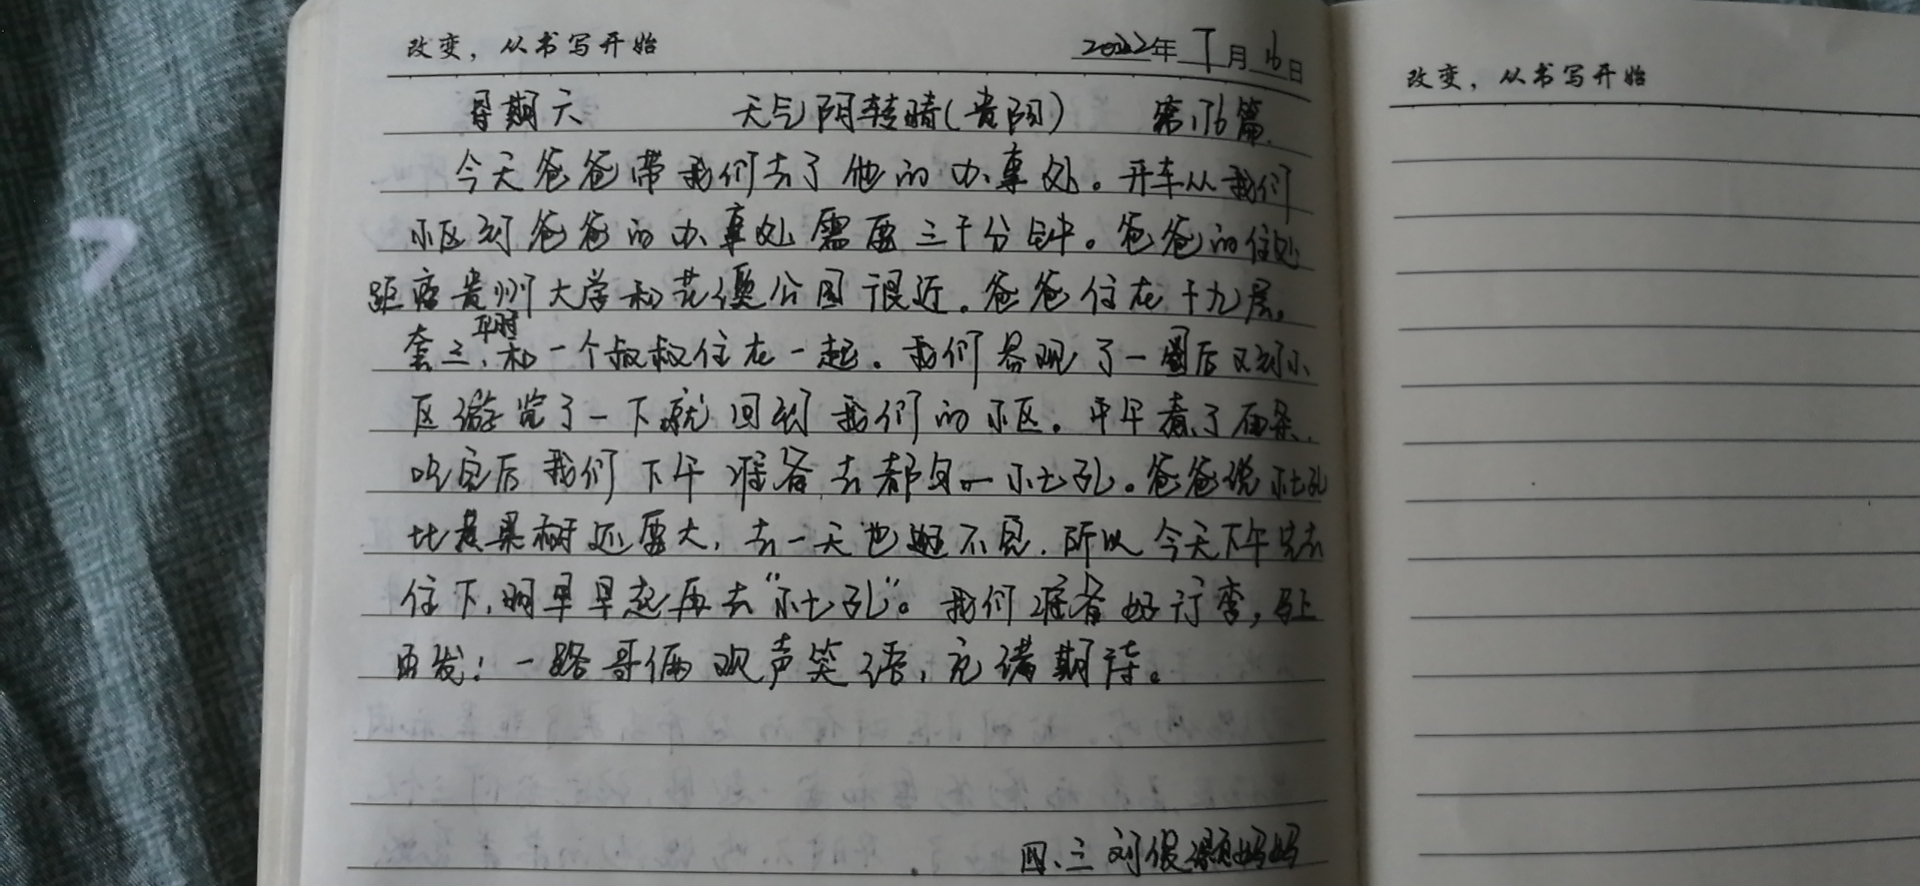 改变，从书写开始
2022年7月16日
星期六 天气阴转晴（贵阳） 第176篇.
今天爸爸带我们去了他的办事处。开车从我们
小区到爸爸的办事处需要三十分钟。爸爸的住处
距离贵州大学和花溪公园很近。爸爸住在十九层。
套三,平时和一个叔叔住在一起。我们参观了一圈后又到小
区游览了一下就回到我们的小区。中午煮了面条.
吃完后我们下午准备去都匀一小七孔。爸爸说小七孔
比黄果树还要大，去一天也逛不完.所以今天下午先去
住下,明早早起再去“小七孔”。我们准备好行李，马上
出发！一路哥俩欢声笑语，充满期待。
四、三 刘俊灏妈妈
改变，从书写开始